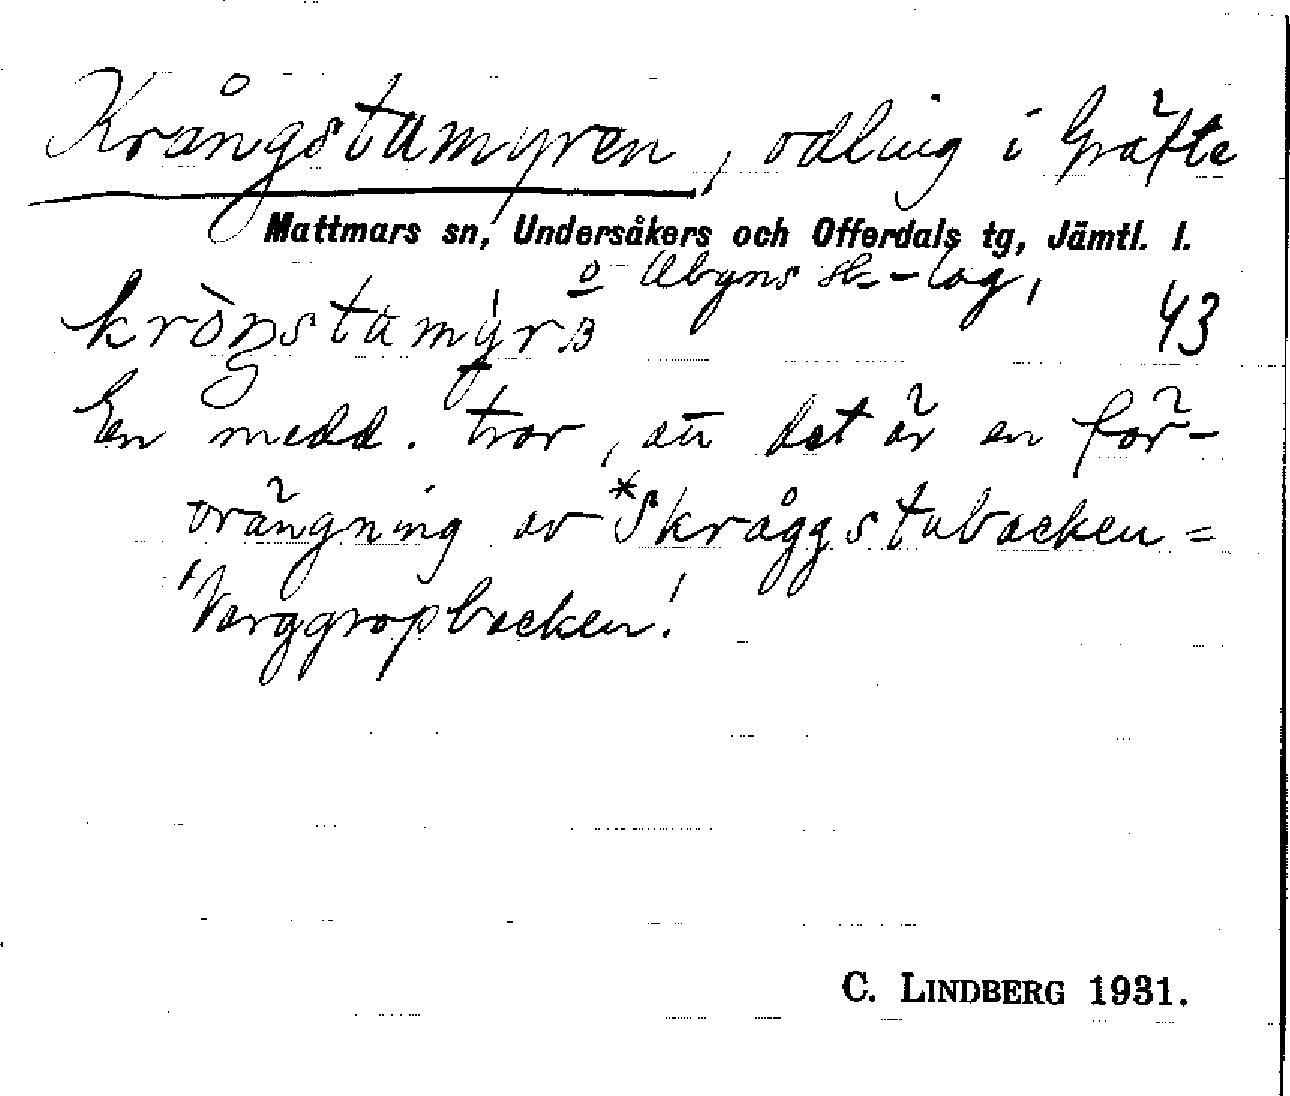 Krångstamyren, odling i Gräfte
Mattmars sn, Undersåkers och Offerdals tg, Jämtl. l.
o Abyns sk-lag, 43
En medd. tror, att det är en för-
vrängning av *Skråggstubacken =
'Varggropbacken'.
C. LINDBERG 1931.